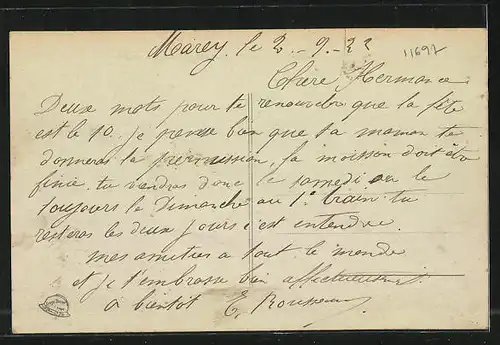 Marey, le 2-9-22
11697
Chère Hermance
Deux mots pour te renouveler que la fête
est le 10. Je pense bien que ta maman te
donneras la permission, la moisson doit être
finie. tu viendras donc le samedi ou le
toujours le Dimanche au 1e train. tu
resteras les deux jours c'est entendue.
mes amitiés a tout le monde
et je t'embrasse bien affectueusement
a bientot E. Rousseau